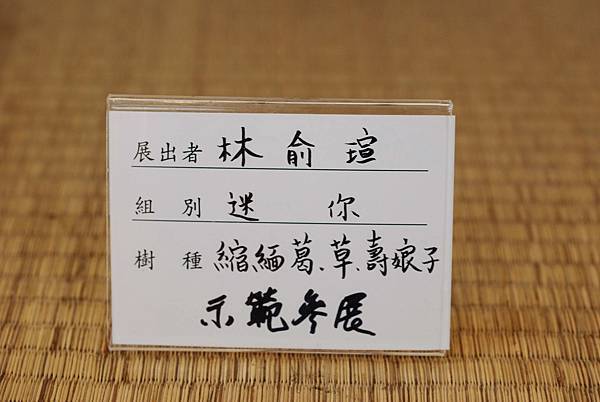 展出者 林俞瑄
組別 迷你
樹種 縮緬葛、草、壽娘子
示範參展